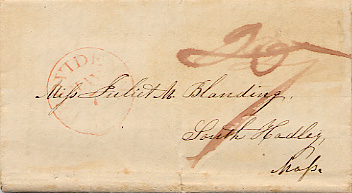 VIDE
Miss Juliet M. Blanding.
South Hadley,
Mass.